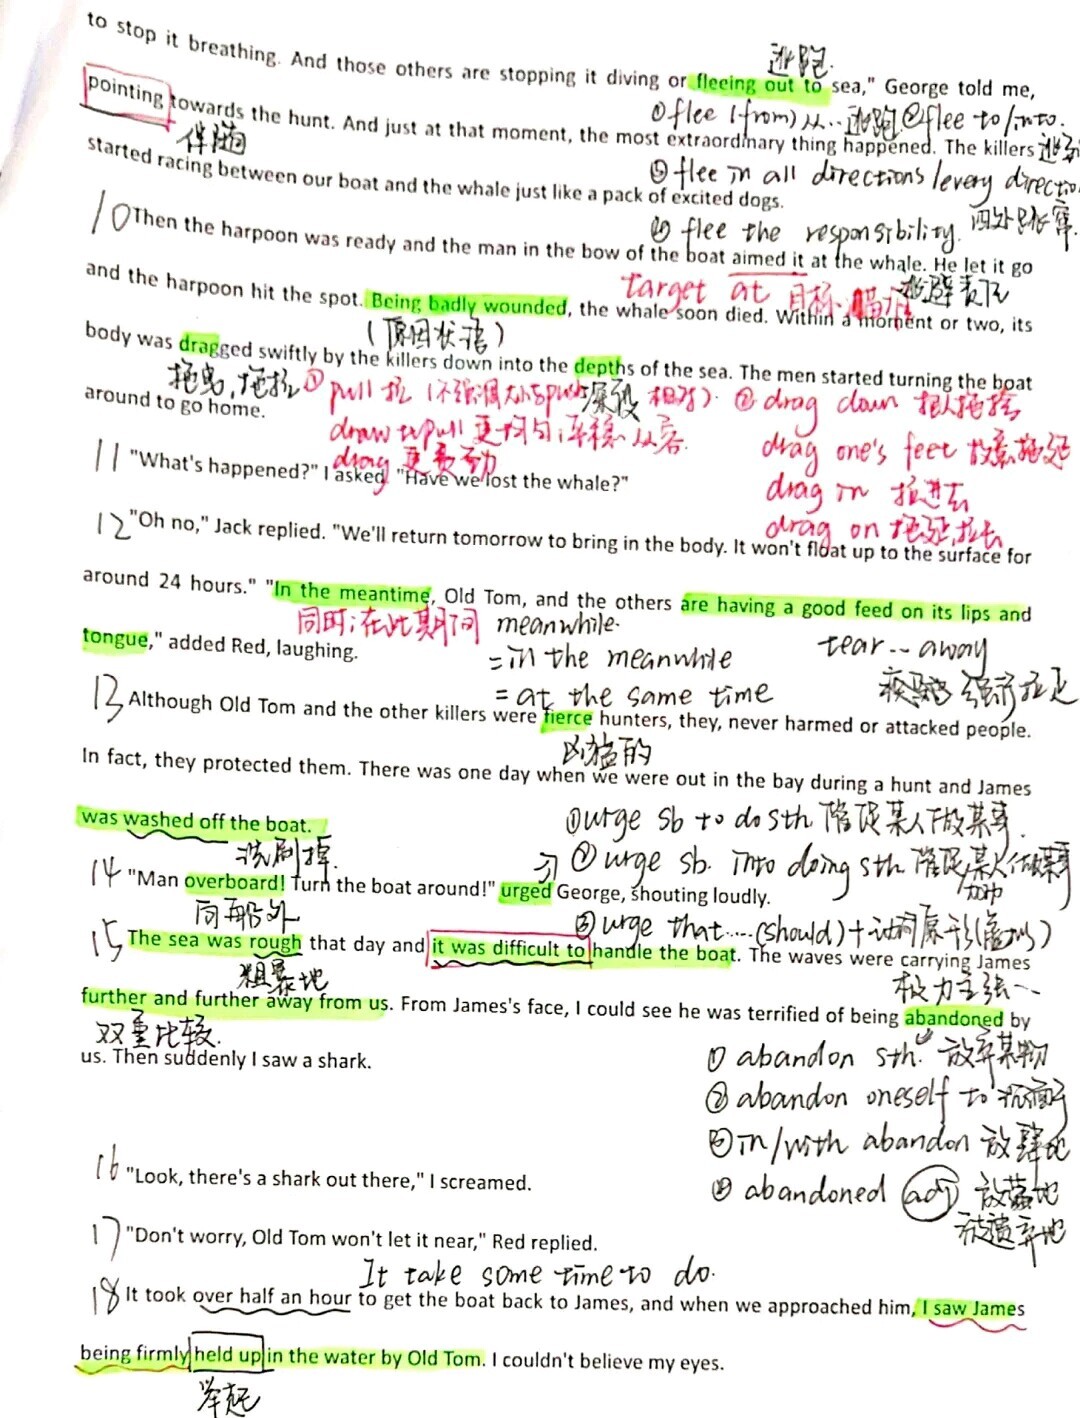 to stop it breathing. And those others are stopping it diving or fleeing out to sea," George told me,
逃跑.
pointing towards the hunt. And just at that moment, the most extraordinary thing happened. The killers
①flee (from) 从...逃跑 ②flee to/into. 逃到
伴随
started racing between our boat and the whale just like a pack of excited dogs.
③ flee in all directions/every direction
四处逃窜.
④ flee the responsibility.
逃避责任
10 Then the harpoon was ready and the man in the bow of the boat aimed it at the whale. He let it go
target at 目标、瞄准
and the harpoon hit the spot. Being badly wounded, the whale soon died. Within a moment or two, its
(原因状语)
body was dragged swiftly by the killers down into the depths of the sea. The men started turning the boat
拖曳,拖拉 ① pull 拉 (不强调大小与push相对). ② drag down 把人拖垮
深渊
around to go home.
draw 比pull 更均匀、平稳、从容
drag one's feet 故意拖延
drag 更费劲
11 "What's happened?" I asked. "Have we lost the whale?"
drag in 拖进去
drag on 拖延,拉长
12 "Oh no," Jack replied. "We'll return tomorrow to bring in the body. It won't float up to the surface for
around 24 hours." "In the meantime, Old Tom, and the others are having a good feed on its lips and
同时;在此期间 meanwhile.
tongue," added Red, laughing.
= in the meanwhile
tear... away
= at the same time
13 Although Old Tom and the other killers were fierce hunters, they, never harmed or attacked people.
凶猛的
In fact, they protected them. There was one day when we were out in the bay during a hunt and James
was washed off the boat.
①urge sb to do sth 催促某人做某事.
洗刷掉.
② urge sb. into doing sth 催促某人做某事
14 "Man overboard! Turn the boat around!" urged George, shouting loudly.
向船外
③urge that....(should)+动词原形(虚拟)
15 The sea was rough that day and it was difficult to handle the boat. The waves were carrying James
粗暴地
极力主张~
further and further away from us. From James's face, I could see he was terrified of being abandoned by
双重比较.
us. Then suddenly I saw a shark.
① abandon sth. 放弃某物
② abandon oneself to 沉湎于
③ in/with abandon 放肆地
16 "Look, there's a shark out there," I screamed.
④ abandoned adj 放荡地
被遗弃地
17 "Don't worry, Old Tom won't let it near," Red replied.
It take some time to do.
18 It took over half an hour to get the boat back to James, and when we approached him, I saw James
being firmly held up in the water by Old Tom. I couldn't believe my eyes.
举起